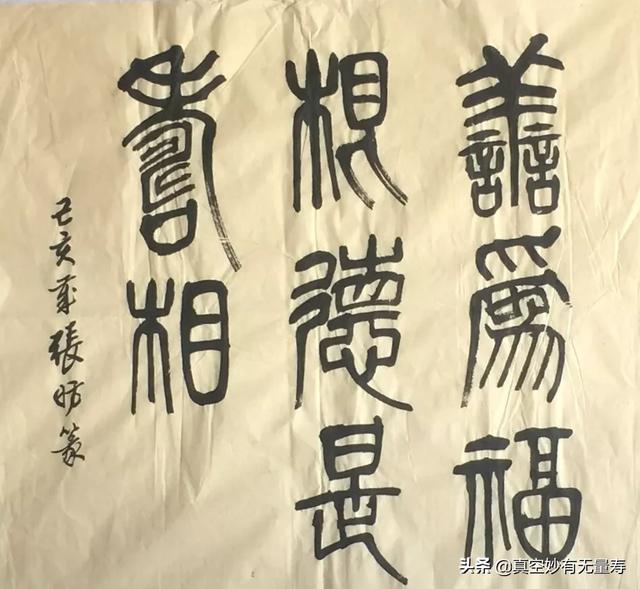 譱爲福
根德是
壽相
己亥張篆
头条 @真空妙有无量寿